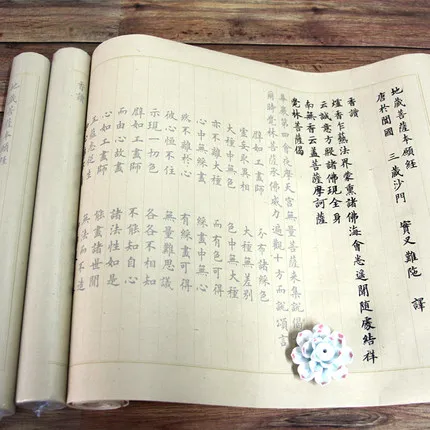 地藏菩薩本願經
唐於闐國 三藏沙門 實叉難陀 譯
香讚
爐香乍爇法界蒙熏諸佛海會悉遙聞隨處結祥
云誠意方殷諸佛現全身
南無香云盖菩薩摩訶薩
覺林菩薩偈
華嚴第四會夜摩天宮無量菩薩來集說偈
爾時覺林菩薩承佛威力遍觀十方而說頌言
辟如工畫師 分布諸綵色
虛妄取異相 大種無差別
大種中無色 色中無大種
亦不離大種 而有色可得
心中無綵畫 綵畫中無心
然不離於心 有綵畫可得
彼心恆不住 無量難思議
示現一切色 各各不相知
辟如工畫師 不能知自心
而由心故畫 諸法性如是
心如工畫師 能畫諸世間
五蘊悉從生 無法而不造
香讚
地藏菩薩本願經